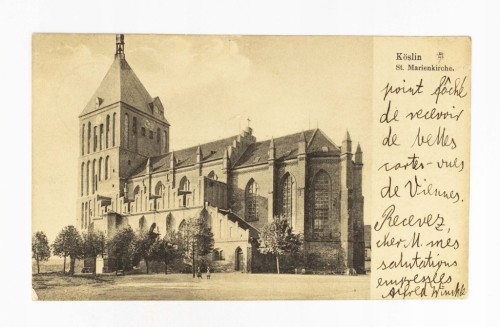 Köslin
St. Marienkirche.
point fâché
de recevoir
de belles
cartes-vues
de Viennes.
Recevez,
cher M. mes
salutations
empressées
Alfred